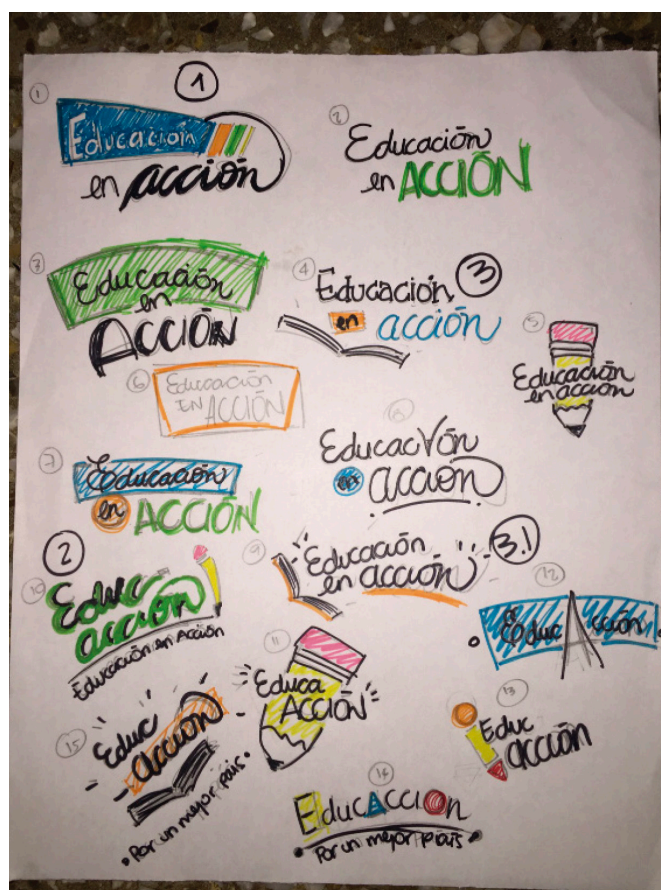 1
1
Educación
en acción
2
Educación
en ACCIÓN
3
Educación
en
ACCIÓN
4
3
Educación
en acción
5
Educación
en acción
6
Educación
EN ACCIÓN
7
Educación
en ACCIÓN
8
EducacVón
en acción
2
10
Educ
acción
Educación en Acción
9
3.1
Educación
en acción
12
EducAcción
11
Educa
ACCIÓN
15
Educ
acción
• Por un mejor país •
13
Educ
acción
14
EducAccion
• Por un mejor país •